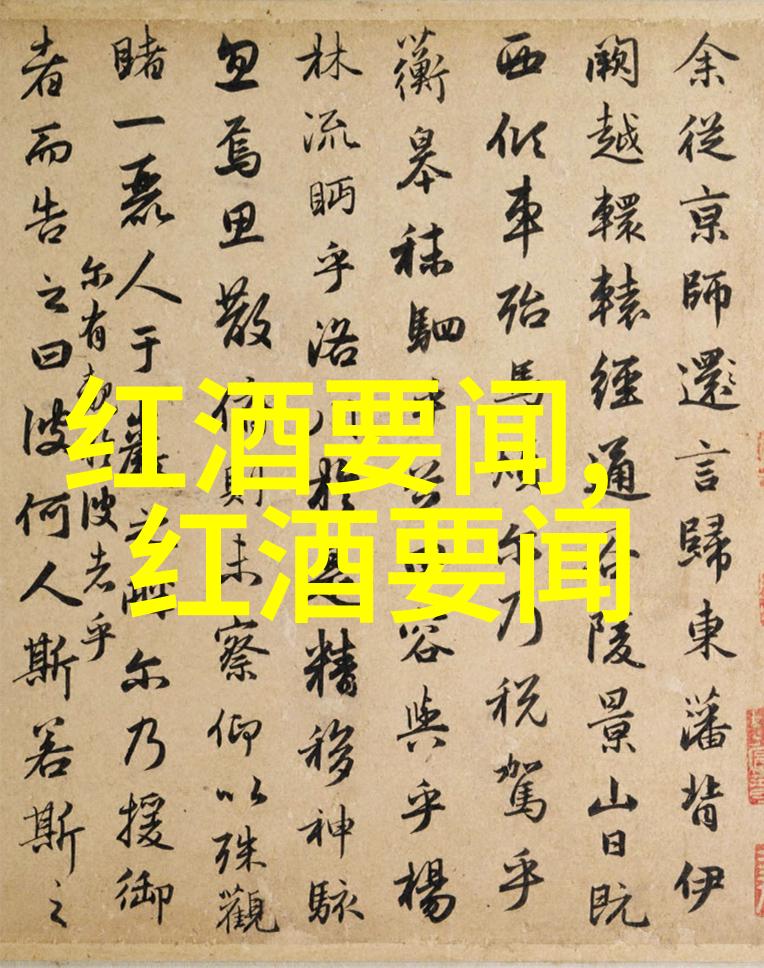 红酒要闻,
红酒要闻
余從京師還言歸東藩背伊
闕越轘轅經通谷陵景山日既
西傾車殆馬煩尓乃税駕乎
蘅皋秣駟乎容與乎楊
林流眄乎洛川於是精移神駭
忽焉思散俯則未察仰以殊觀
睹一麗人于巖之畔尔乃援御
尔有彼者乎
者而告之曰彼何人斯若斯之